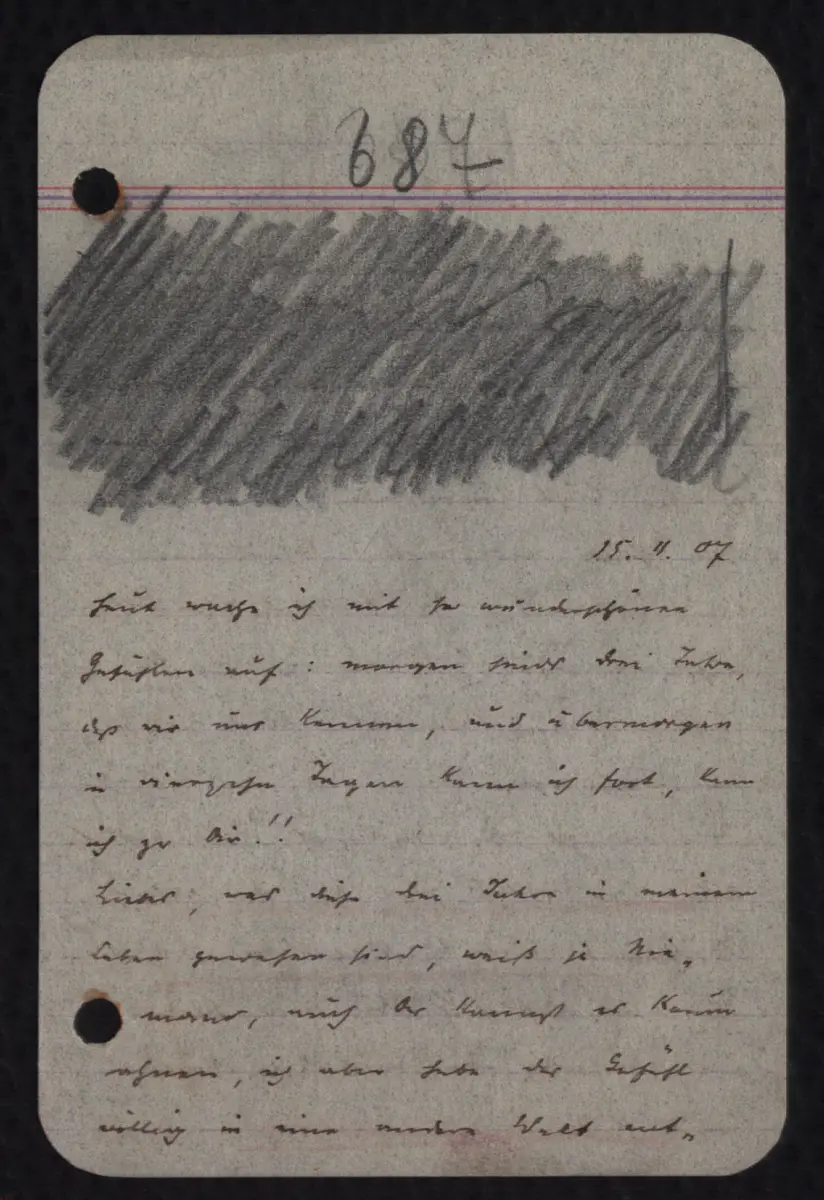 687
15. 11. 07
Heut wache ich mit so wunderschönen
Gefühlen auf: morgen sinds drei Jahre,
daß wir uns kennen, und übermorgen
in vierzehn Tagen kann ich fort, kann
ich zu Dir!!
Liebes, was diese drei Jahre in meinem
Leben gewesen sind, weiß ja Nie„
mand, auch Du kannst es kaum
ahnen, ich aber habe das Gefühl
völlig in eine andere Welt ent„